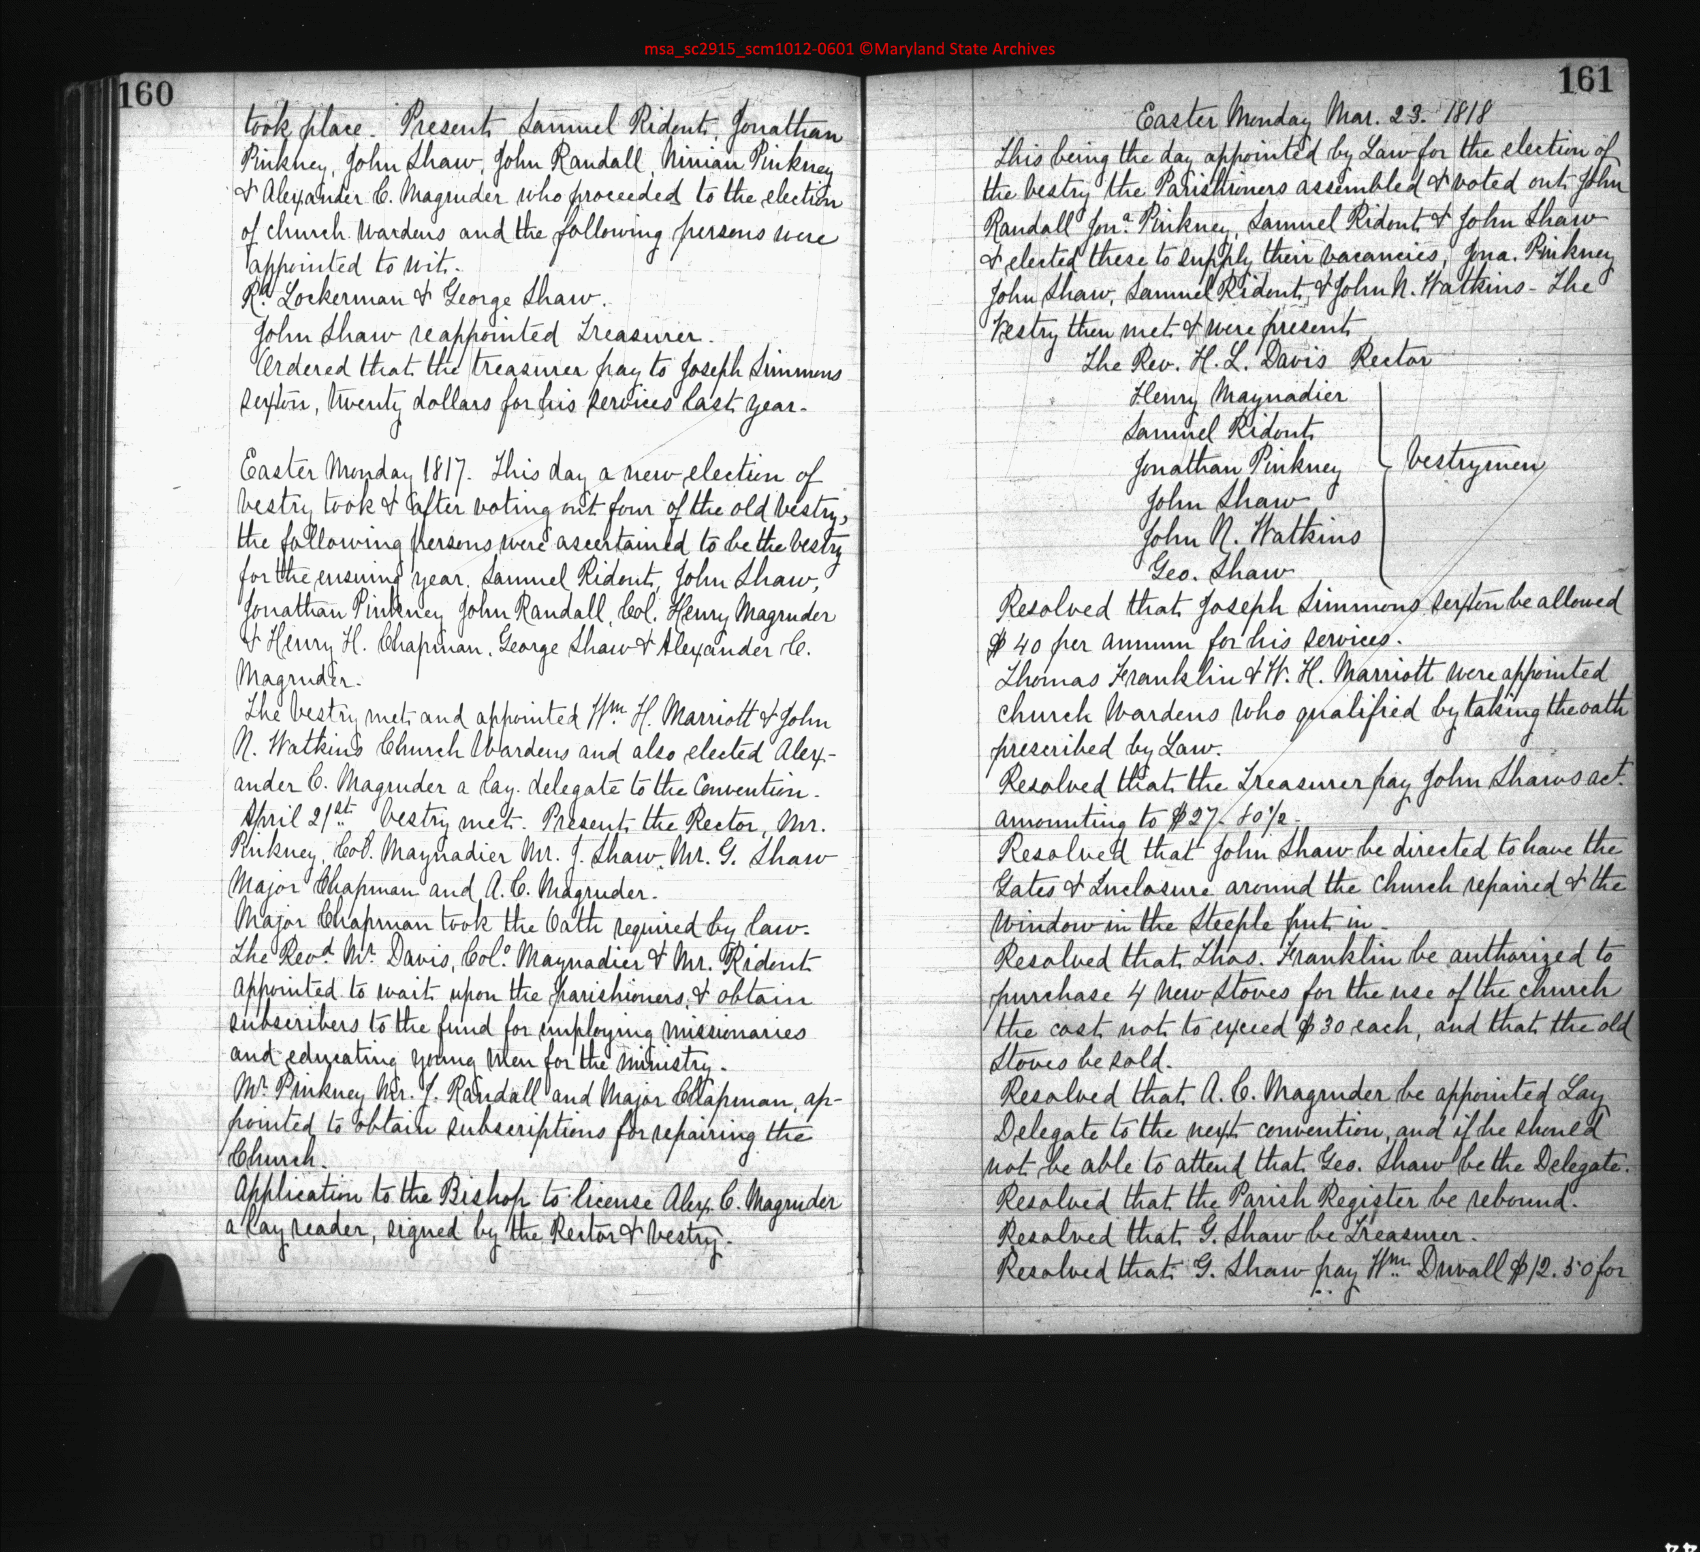 msa_sc2915_scm1012-0601 ©Maryland State Archives
160
took place. Present Samuel Ridout, Jonathan
Pinkney, John Shaw, John Randall, Ninian Pinkney
& Alexander C. Magruder who proceeded to the election
of church wardens and the following persons were
appointed to wit.
Rd. Lockerman & George Shaw.
John Shaw reappointed Treasurer.
Ordered that the treasurer pay to Joseph Simmons
sexton, twenty dollars for his services last year.
Easter Monday 1817. This day a new election of
vestry took & after voting out four of the old vestry,
the following persons were ascertained to be the vestry
for the ensuing year. Samuel Ridout, John Shaw,
Jonathan Pinkney John Randall, Col. Henry Magruder
& Henry H. Chapman, George Shaw & Alexander C.
Magruder.
The vestry met and appointed Wm. H. Marriott & John
N. Watkins Church Wardens and also elected Alex-
ander C. Magruder a lay delegate to the Convention.
April 21st. Vestry met. Present the Rector, Mr.
Pinkney, Col. Maynadier Mr. J. Shaw, Mr. G. Shaw
Major Chapman and A. C. Magruder.
Major Chapman took the Oath required by law.
The Revd. Mr. Davis, Colo. Maynadier & Mr. Ridout
appointed to wait upon the parishioners & obtain
subscribers to the fund for employing missionaries
and educating young men for the ministry.
Mr. Pinkney Mr. J. Randall and Major Chapman, ap-
pointed to obtain subscriptions for repairing the
Church.
Application to the Bishop to license Alex. C. Magruder
a lay reader, signed by the Rector & Vestry.
161
Easter Monday Mar. 23. 1818
This being the day appointed by Law for the election of
the vestry the Parishioners assembled & voted out John
Randall Jona. Pinkney, Samuel Ridout & John Shaw
& elected these to supply their vacancies, Jona. Pinkney
John Shaw, Samuel Ridout, & John N. Watkins - The
Vestry then met & were present
The Rev. H. L. Davis Rector
Henry Maynadier
Samuel Ridout
Jonathan Pinkney
Vestrymen
John Shaw
John N. Watkins
Geo. Shaw
Resolved that Joseph Simmons sexton be allowed
$40 per annum for his services.
Thomas Franklin & W. H. Marriott were appointed
Church Wardens who qualified by taking the oath
prescribed by Law.
Resolved that the Treasurer pay John Shaws act.
amounting to $27. 80½.
Resolved that John Shaw be directed to have the
Gates & Inclosure around the Church repaired & the
window in the Steeple put in.
Resolved that Thos. Franklin be authorized to
purchase 4 new Stoves for the use of the church
the cost not to exceed $30 each, and that the old
Stoves be sold.
Resolved that A. C. Magruder be appointed Lay
Delegate to the next convention, and if he should
not be able to attend that Geo. Shaw be the Delegate.
Resolved that the Parish Register be rebound.
Resolved that G. Shaw be Treasurer.
Resolved that G. Shaw pay Wm. Duvall $12.50 for